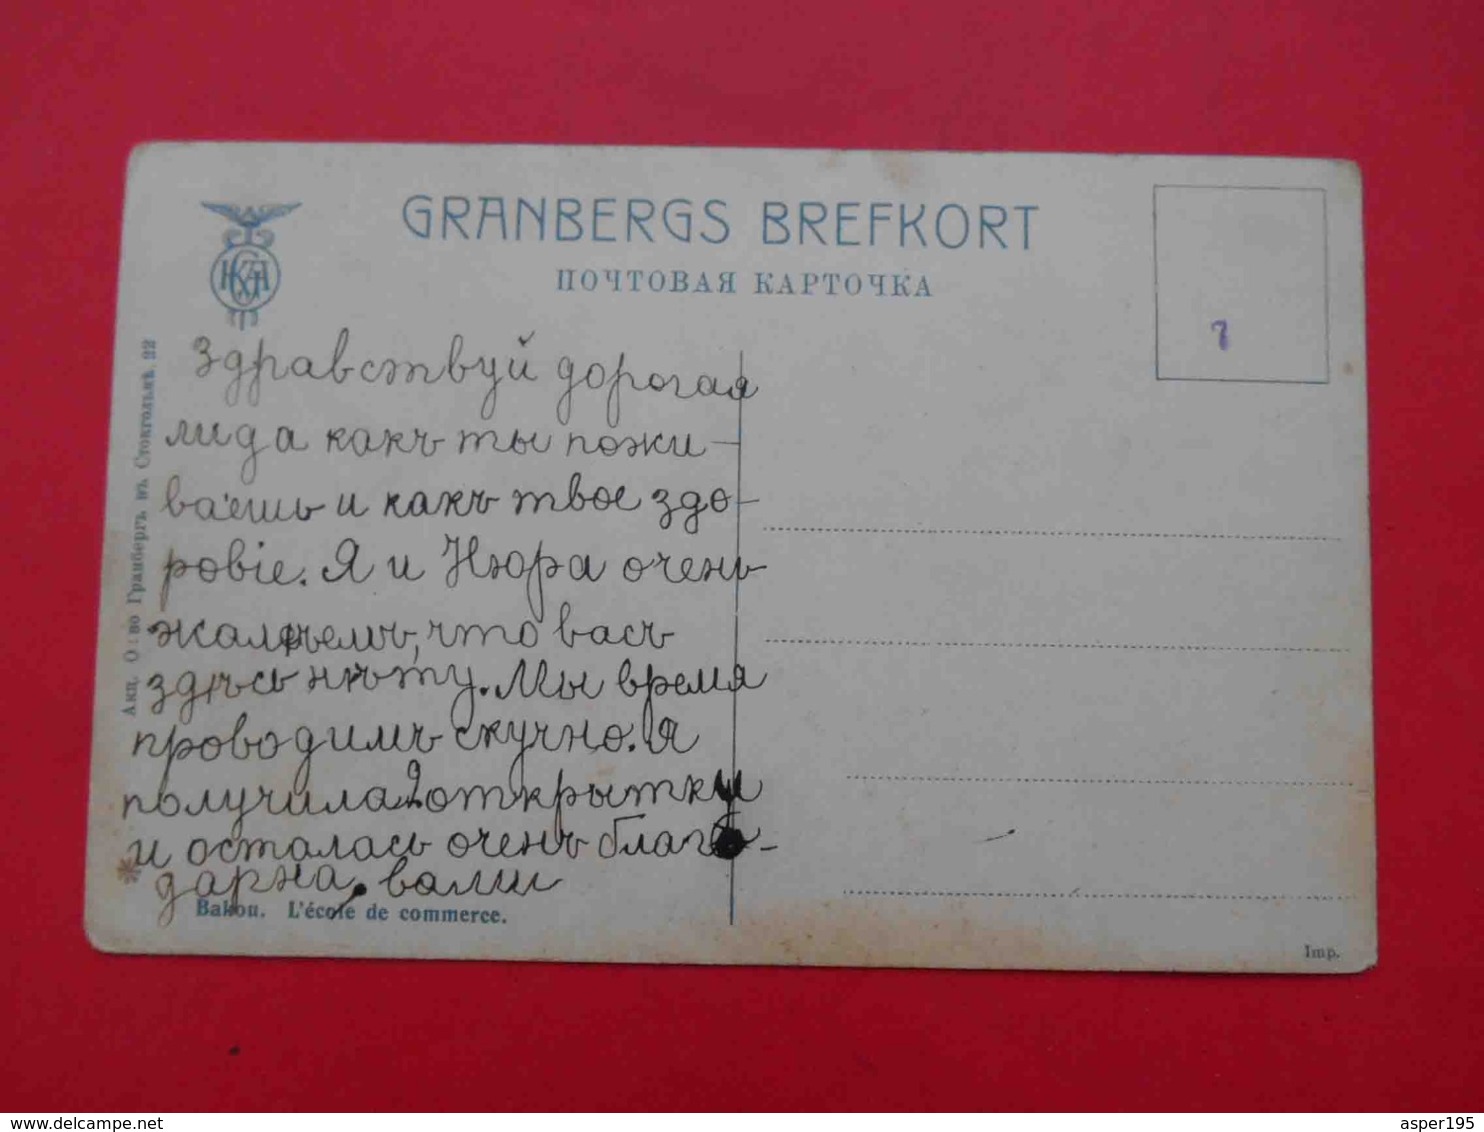 GRANBERGS BREFKORT
ПОЧТОВАЯ КАРТОЧКА
Здравствуй дорогая
лида какъ ты пожи-
ваешь и какъ твое здо-
ровіе. Я и Нюра очень
жалѣемъ, что васъ
здѣсь нѣту. Мы время
проводимъ скучно. Я
получила 2 открытки
и осталась очень благо-
дарна. вами
Bakou. L'école de commerce.
Акц. О:во Гранбергъ въ Стокгольмѣ. 22
Imp.
delcampe.net
asper195